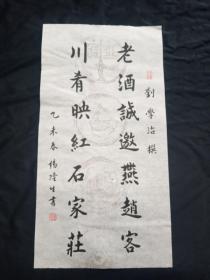 劉學治撰
老酒誠邀燕趙客
川肴映紅石家莊
乙未春楊隆生書